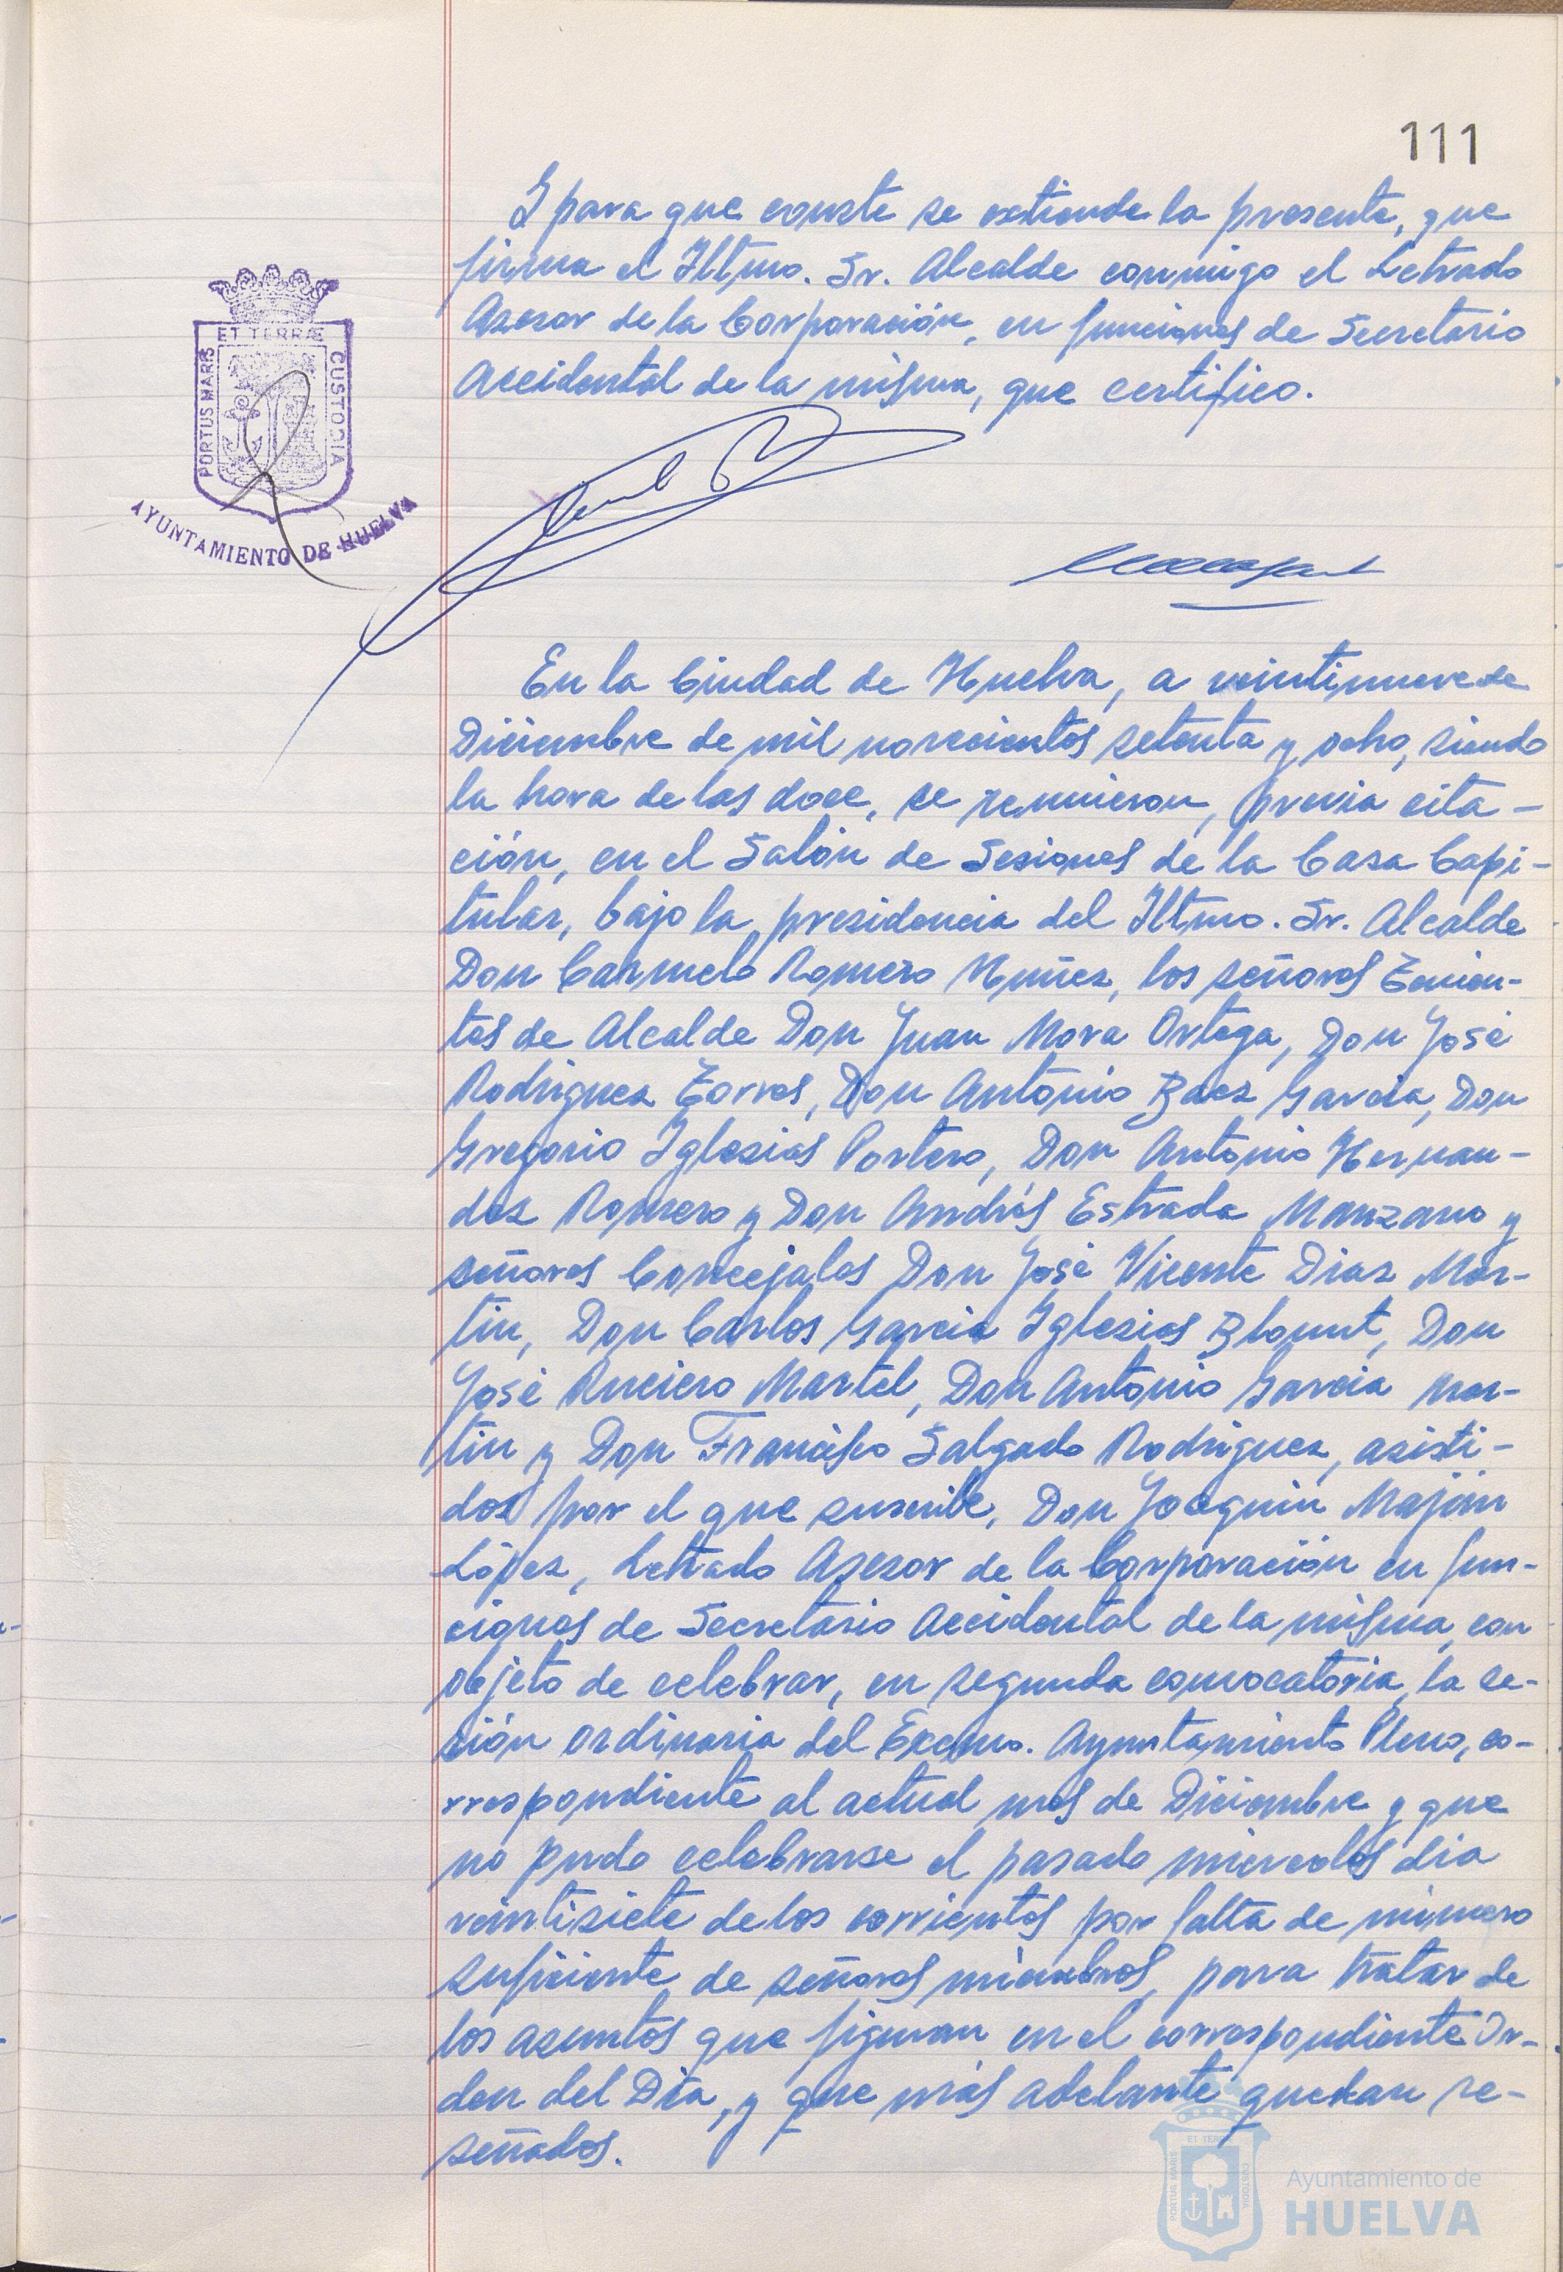 111
Y para que conste se extiende la presente, que
firma el Iltmo. Sr. Alcalde conmigo el Letrado
Asesor de la Corporación, en funciones de Secretario
Accidental de la misma, que certifico.
ET TERRÆ
PORTUS MARIS
CUSTODIA
AYUNTAMIENTO DE HUELVA
En la Ciudad de Huelva, a veintinueve de
Diciembre de mil novecientos setenta y ocho, siendo
la hora de las doce, se reunieron, previa cita-
ción, en el Salón de Sesiones de la Casa Capi-
tular, bajo la presidencia del Iltmo. Sr. Alcalde
Don Carmelo Romero Núñez, los señores Tenien-
tes de Alcalde Don Juan Mora Ortega, Don José
Rodriguez Torres, Don Antonio Baez Garcia, Don
Gregorio Iglesias Portero, Don Antonio Hernan-
dez Romero y Don Andrés Estrada Manzano y
señores Concejales Don José Vicente Diaz Mar-
tin, Don Carlos Garcia Iglesias Blount, Don
José Ruciero Martel, Don Antonio Garcia Mar-
tin y Don Francisco Salgado Rodriguez, asisti-
dos por el que suscribe, Don Joaquin Majón
López, Letrado Asesor de la Corporación en fun-
ciones de Secretario Accidental de la misma, con
objeto de celebrar, en segunda convocatoria, la se-
sión ordinaria del Excmo. Ayuntamiento Pleno, co-
rrespondiente al actual mes de Diciembre y que
no pudo celebrarse el pasado miercoles dia
veintisiete de los corrientes por falta de número
suficiente de señores miembros, para tratar de
los asuntos que figuran en el correspondiente Or-
den del Dia, y que más adelante quedan re-
señados.
ET TERRÆ
PORTUS MARIS
CUSTODIA
Ayuntamiento de
HUELVA